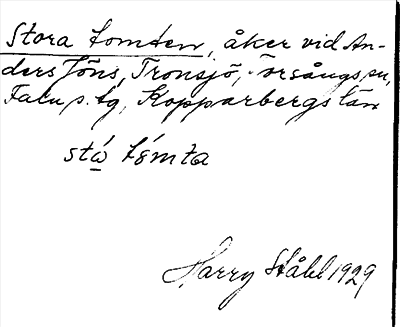 Stora tomten, åker vid An-
ders Jöns, Tronsjö, Torsångs sn,
Falu s. tg, Kopparbergs län
stó tómta
Harry Ståhl 1929